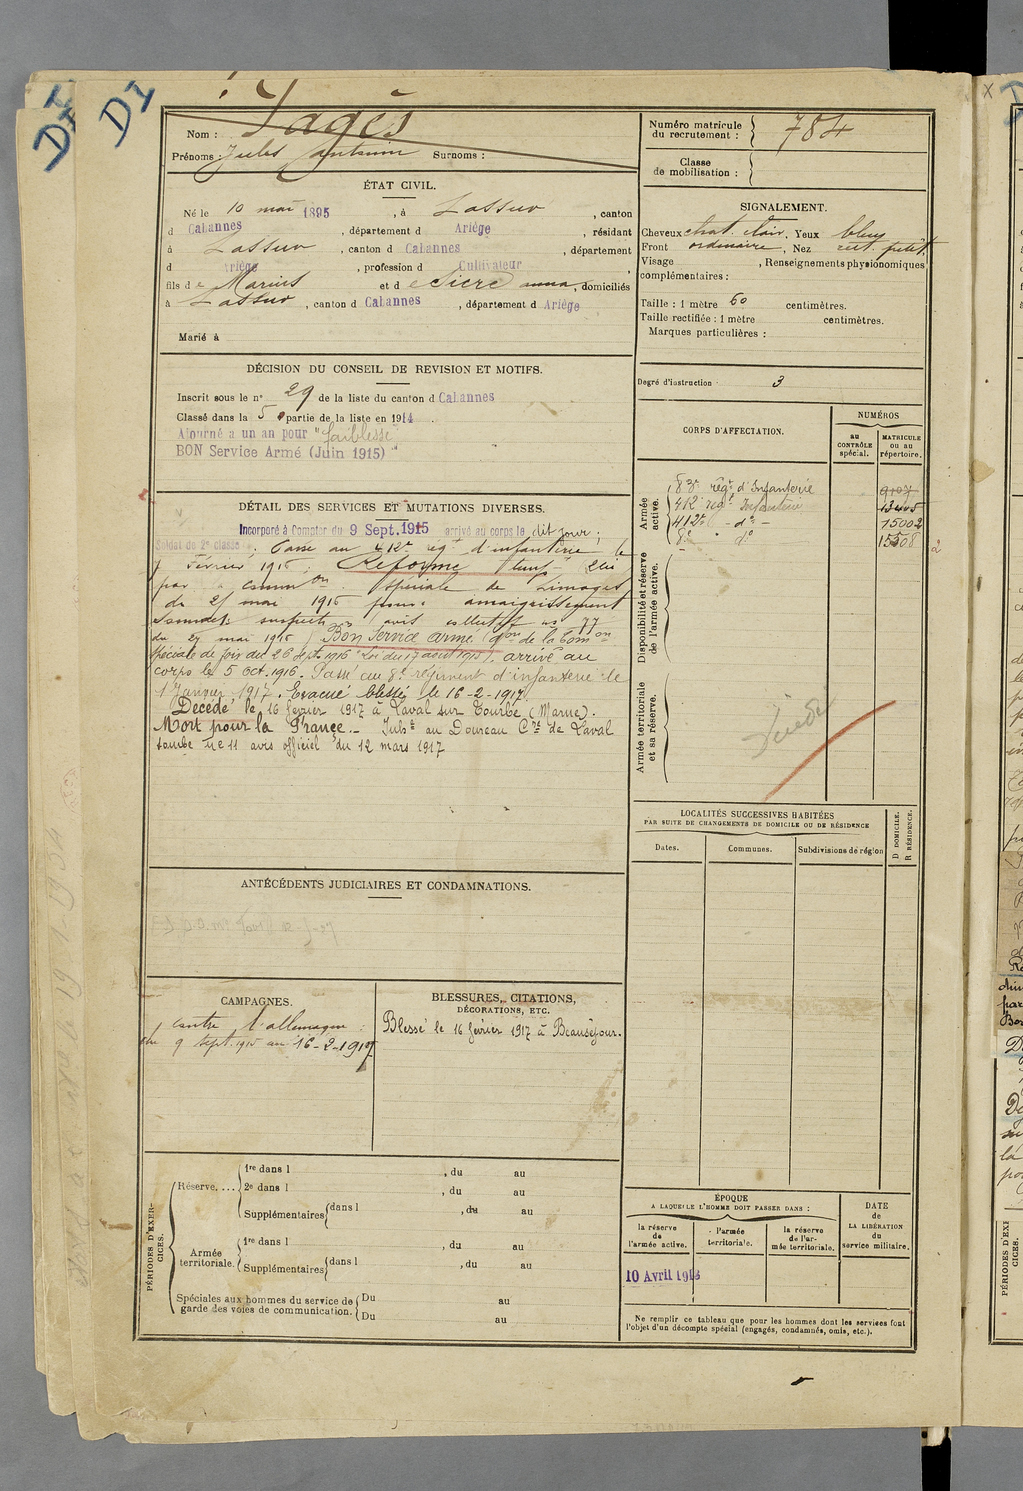 DI
DI
Nom : Pagès
Prénoms : Jules Antonin Surnoms :
ÉTAT CIVIL.
Né le 10 mai 1895, à Lassur, canton
d Cabannes, département d Ariège, résidant
à Lassur, canton d Cabannes, département
d Ariège, profession d Cultivateur,
fils de Marius et de Sicre Anna, domiciliés
à Lassur, canton d Cabannes, département d Ariège
Marié à
DÉCISION DU CONSEIL DE REVISION ET MOTIFS.
Inscrit sous le n° 29 de la liste du canton d Cabannes
Classé dans la 5e partie de la liste en 1914.
Ajourné a un an pour "faiblesse"
BON Service Armé (Juin 1915)
DÉTAIL DES SERVICES ET MUTATIONS DIVERSES.
Incorporé à Compter du 9 Sept. 1915 arrivé au corps le dit jour;
Soldat de 2e classe. Passé au 412e régt d'infanterie le
février 1916; Réformé temp
par common spéciale de Limoges
du 25 mai 1916 pour: amaigrissement
sommets suspects avis collectif no 77
du 27 mai 1916) Bon Service armé (don de la Common
spéciale de Foix du 26 sept. 1916 Loi du 17 août 1915). arrivé au
corps le 5 oct. 1916. Passé au 8e régiment d'infanterie le
1 Janvier 1917. Evacué blessé le 16-2-1917
Décédé le 16 février 1917 à Laval sur Tourbe (Marne).
Mort pour la France._ Inhé au Doureau Cne de Laval
tombe no 11 avis officiel du 12 mars 1917
ANTÉCÉDENTS JUDICIAIRES ET CONDAMNATIONS.
CAMPAGNES.
contre l'allemagne :
du 9 sept. 1915 au 16-2-1917
BLESSURES, CITATIONS,
DÉCORATIONS, ETC.
Blessé le 16 février 1917 à Beauséjour.
PÉRIODES D'EXERCICES.
Réserve....
1re dans l , du au
2e dans l , du au
Supplémentaires dans l , du au
Armée territoriale.
1re dans l , du au
Supplémentaires dans l , du au
Spéciales aux hommes du service de garde des voies de communication.
Du au
Du au
Numéro matricule du recrutement : 784
Classe de mobilisation :
SIGNALEMENT.
Cheveux chat. clair, Yeux bleus
Front ordinaire, Nez rect. petit.
Visage , Renseignements physionomiques
complémentaires :
Taille : 1 mètre 60 centimètres.
Taille rectifiée : 1 mètre centimètres.
Marques particulières :
Degré d'instruction 3
CORPS D'AFFECTATION.
NUMÉROS
au CONTRÔLE spécial.
MATRICULE ou au répertoire.
Armée active.
83e régt d'Infanterie 9107
412e régt Infanterie 13405
412e - do - 15002
8e " do 15508
Disponibilité et réserve de l'armée active.
Armée territoriale et sa réserve.
Décédé
LOCALITÉS SUCCESSIVES HABITÉES
PAR SUITE DE CHANGEMENTS DE DOMICILE OU DE RÉSIDENCE
Dates.
Communes.
Subdivisions de région
D DOMICILE.
R RÉSIDENCE.
ÉPOQUE
A LAQUELLE L'HOMME DOIT PASSER DANS :
la réserve de l'armée active.
l'armée territoriale.
la réserve de l'armée territoriale.
DATE de LA LIBÉRATION du service militaire.
10 Avril 1918
Ne remplir ce tableau que pour les hommes dont les services font
l'objet d'un décompte spécial (engagés, condamnés, omis, etc.).
PÉRIODES D'EXERCICES.